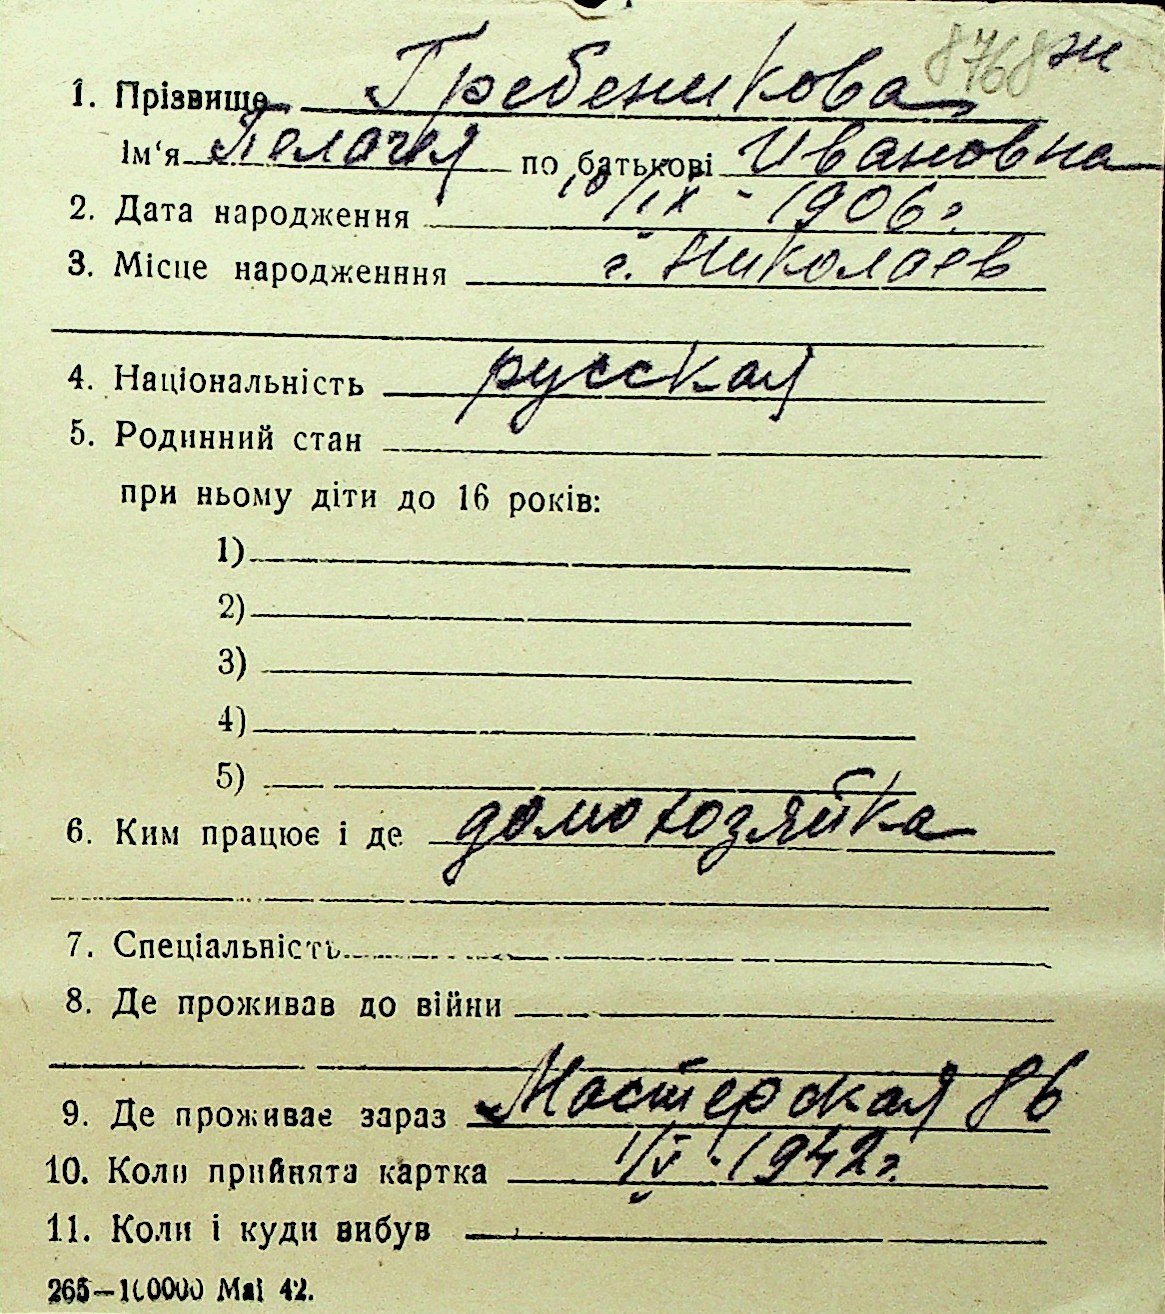 8768 ж
1. Прізвище Гребеникова
Ім‘я Пелагея по батькові Ивановна
2. Дата народження 10/IX - 1906 г.
3. Місце народженння г. Николаев
4. Національність русская
5. Родинний стан
при ньому діти до 16 років:
1)
2)
3)
4)
5)
6. Ким працює і де домохозяйка
7. Спеціальність
8. Де проживав до війни
9. Де проживає зараз Мастерская 86
10. Коли прийнята картка 1/V - 1942 г.
11. Коли і куди вибув
265—100000 Mai 42.